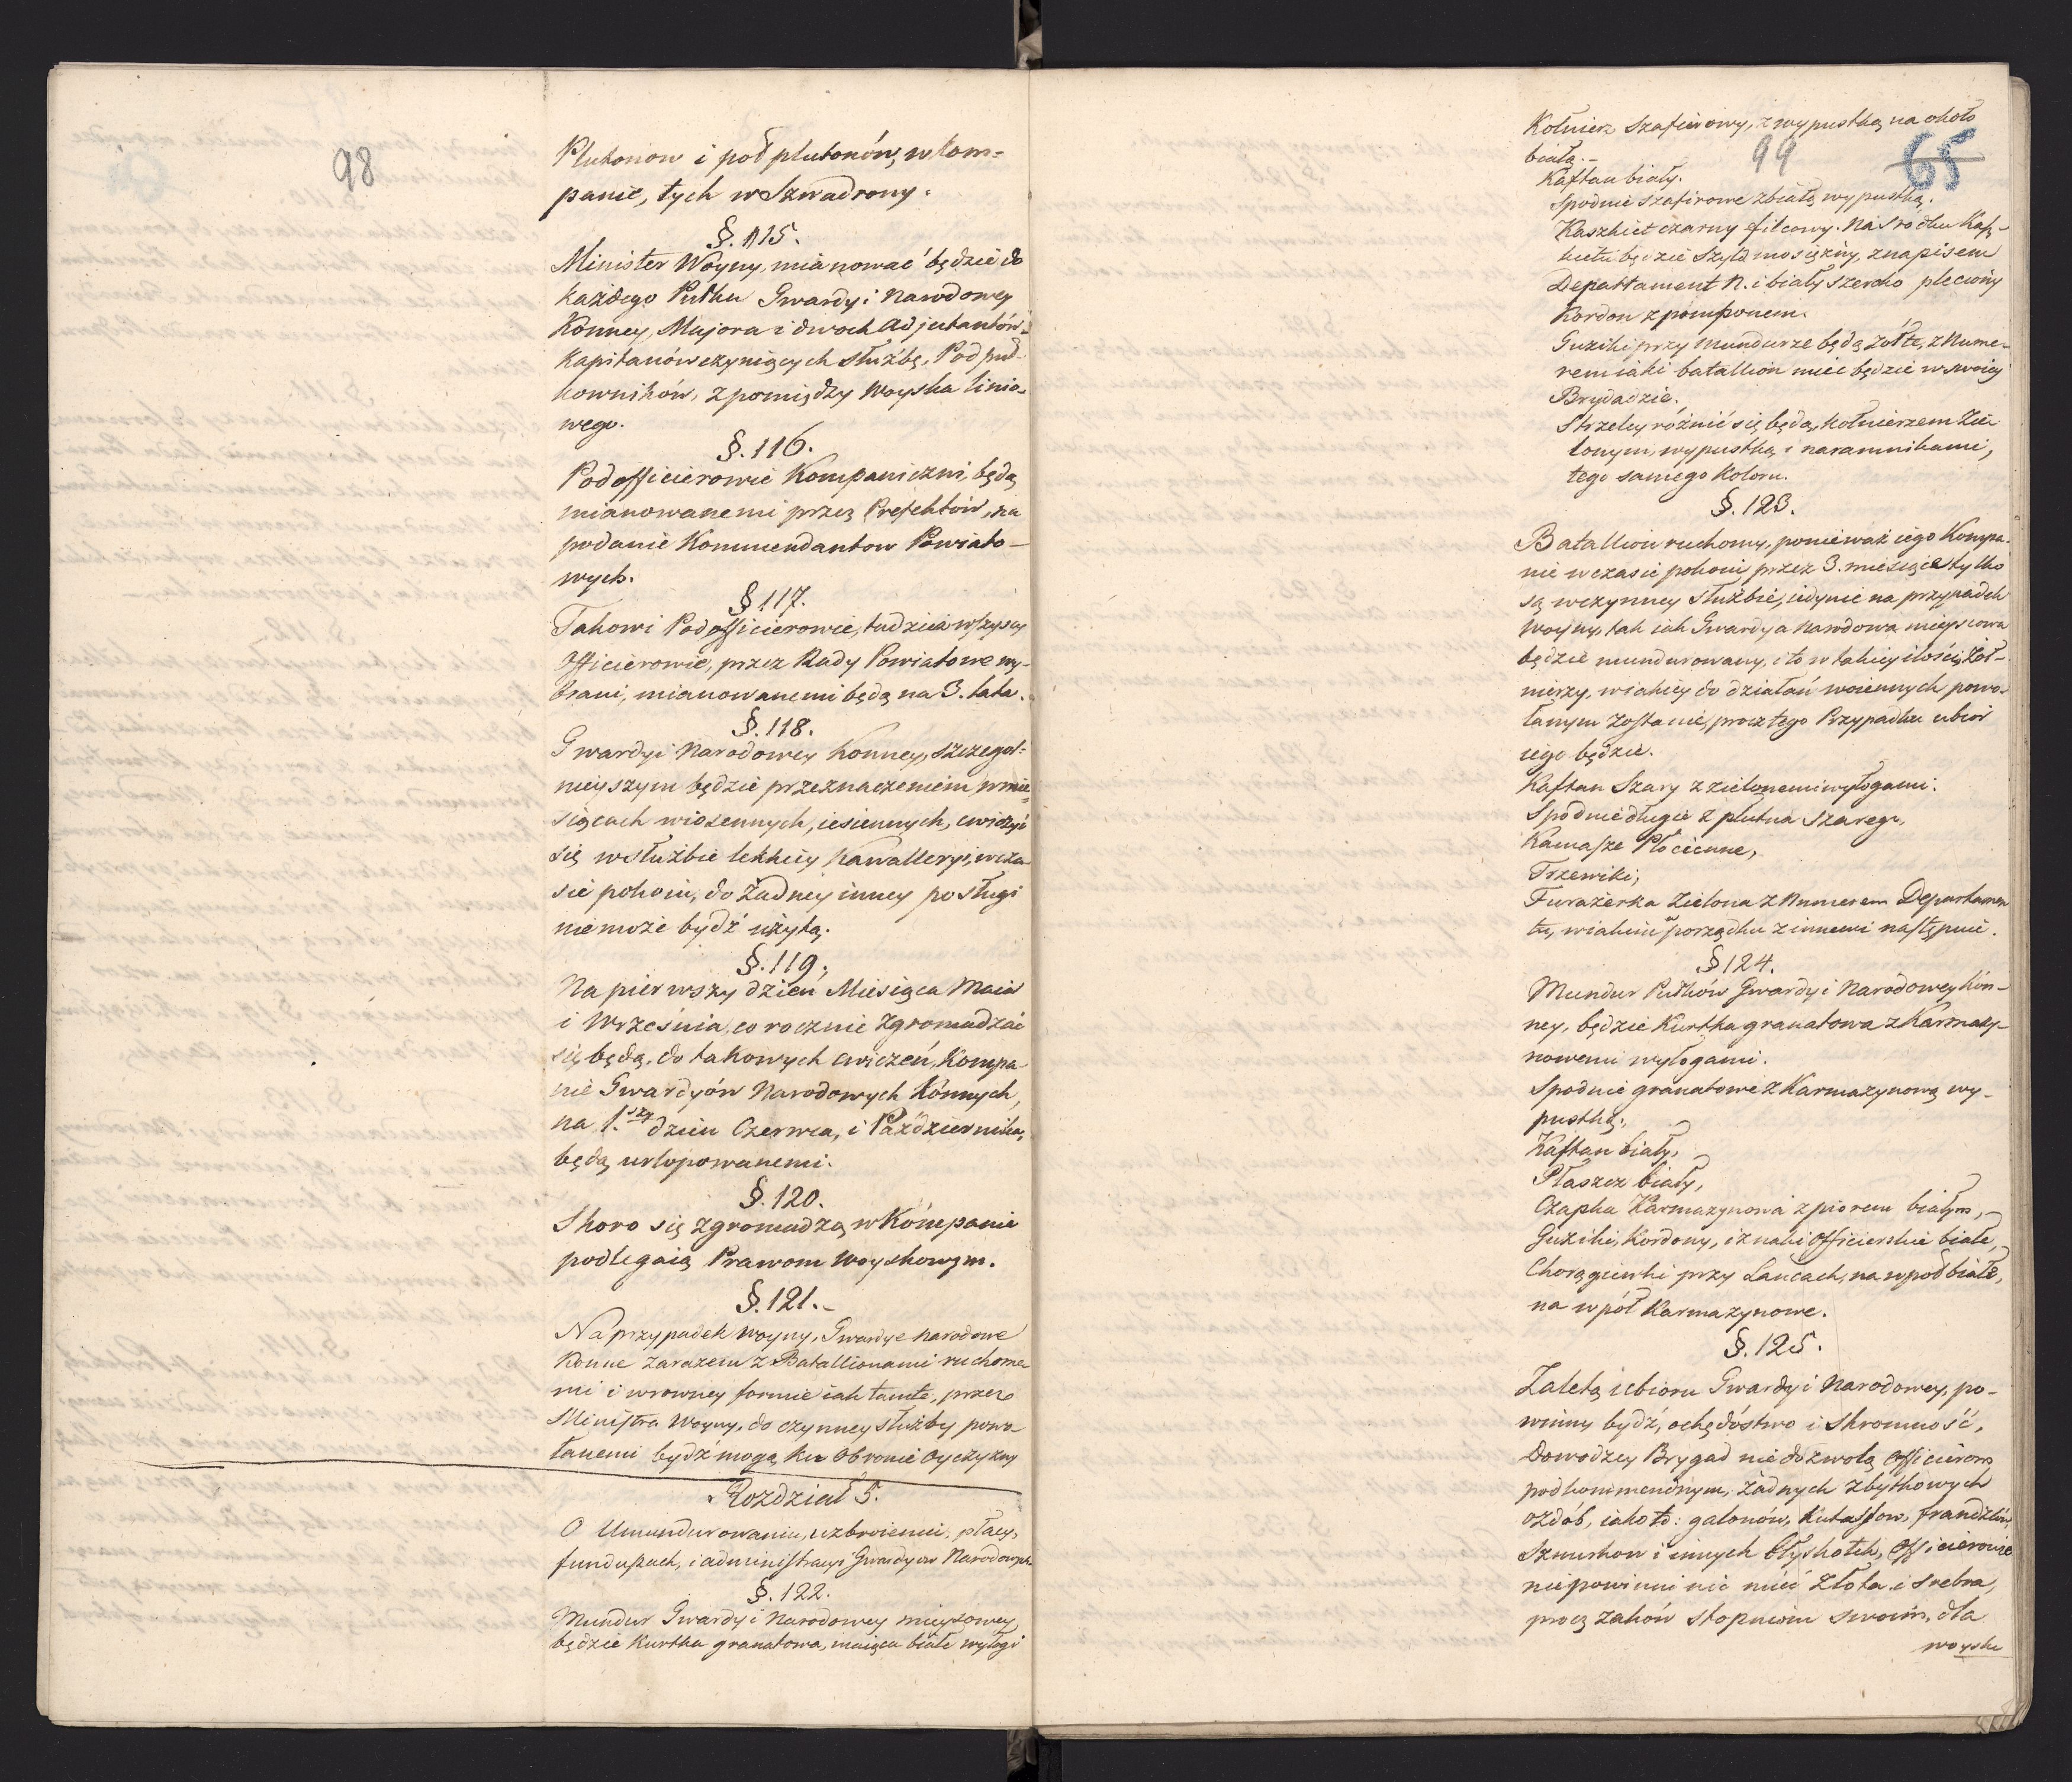 98
Plutonow i pod plutonów, w kom=
panie, tych w Szwadrony.
§. 115.
Minister Woyny, mianować będzie do
każdego Pułku Gwardyi Narodowey
Konney, Majora i dwoch Adjutantów
Kapitanów czyniących służbę, Podpuł-
kowników, z pomiędzy Woyska linio-
wego.
§. 116.
Podofficierowie Kompaniczni, będą
mianowanemi przez Prefektów, na
podanie Kommendantow Powiato-
wych.
§ 117.
Takowi Podofficierowie, tudzież wszyscy
Officierowie, przez Rady Powiatowe wy-
brani, mianowanemi będą na 3. lata.
§. 118.
Gwardyi Narodowey Konney, szczegól=
nieyszym będzie przeznaczeniem w mie=
siącach wiosennych, iesiennych, cwiczyć
się w służbie lekkiey Kawalleryi, w cza-
sie pokoiu, do żadney inney posługi
nie może bydź użytą.
§. 119.
Na pierwszy dzień Miesiąca Maia
i Września, co rocznie zgromadzać
się będą, do takowych cwiczeń, Kompa-
nie Gwardyów Narodowych Kónnych,
na 1.szy dzień Czerwca, i Października,
będą urlopowanemi.
§. 120.
Skoro się zgromadzą w Kómpanie
podlegaią Prawom Woyskowym.
§. 121.-
Na przypadek Woyny, Gwardye narodowe
Konne zarazem z Batallionami ruchome-
mi i w rowney formie iak tamte, przez
Ministra Woyny, do czynney służby powo-
łanemi bydź mogą ku Obronie Oyczyzny
Rozdział 5.
O Umundurowaniu, uzbroieniu, płacy,
funduszach, i administracyi Gwardyow Narodowych
§. 122.
Mundur Gwardyi Narodowey mieyscowey
będzie Kurtka granatowa, maiąca białe wyłogi
Kołnierz Szafirowy, z wypustką na około
białą.-
99
65
Kaftan biały.
Spodnie szafirowe z białą wypustką.
Kaszkiet czarny filcowy. Na srodku Kasz-
kietu będzie Szyld mosiężny, z napisem
Departament N. i biały szeroko pleciony
Kordon z pomponem.
Guziki przy Mundurze będą żółte, z Nume-
rem iaki batallion mieć będzie w swoiey
Brygadzie.
Strzelcy różnić się będą, kołnierzem Zie
lonym, wypustką i naramnikami,
tego samego Koloru.
§. 123.
Batallion ruchomy, ponieważ iego Kompa-
nie w czasie pokoiu przez 3. miesiące tylko
są w czynney służbie, iedynie na przypadek
Woyny, tak iak Gwardya Narodowa mieyscowa
będzie mundurowany, i to w takiey ilości Żoł-
nierzy, w iakiey do działań woiennych powo-
łanym zostanie, procz tego Przypadku ubior
iego będzie.
Kaftan Szary z zielonemi wyłogami.
Spodnie długie z płutna Szarego,
Kamasze Płocienne,
Trzewiki,
Furażerka Zielona z Numerem Departamen
tu, w iakim w porządku z innemi następuie.
§ 124.
Mundur Pułków Gwardyi Narodowey Kón-
ney, będzie Kurtka granatowa z Karmazy-
nowemi wyłogami.
Spodnie granatowe z Karmazynową wy-
pustką,
Kaftan biały,
Płaszcz biały,
Czapka Karmazynowa z piorem białym,
Guziki, Kordony, i znaki Officierskie białe,
Chorągiewki przy Lancach, na wpoł białe,
na wpół Karmazynowe.
§. 125.
Zaletą ubioru Gwardyi Narodowey, po-
winny bydź, ochędóstwo i Skromność,
Dowodzcy Brygad nie dozwolą Officierom
podkommendnym, żadnych zbytkowych
ozdób, iako to: galonów, Kutassow, frandzlów,
Sznurkow i innych błyskotek, Officierowie
nie powinni nic mieć Złota i Srebra,
procz znaków Stopniów swoich, dla
woyska